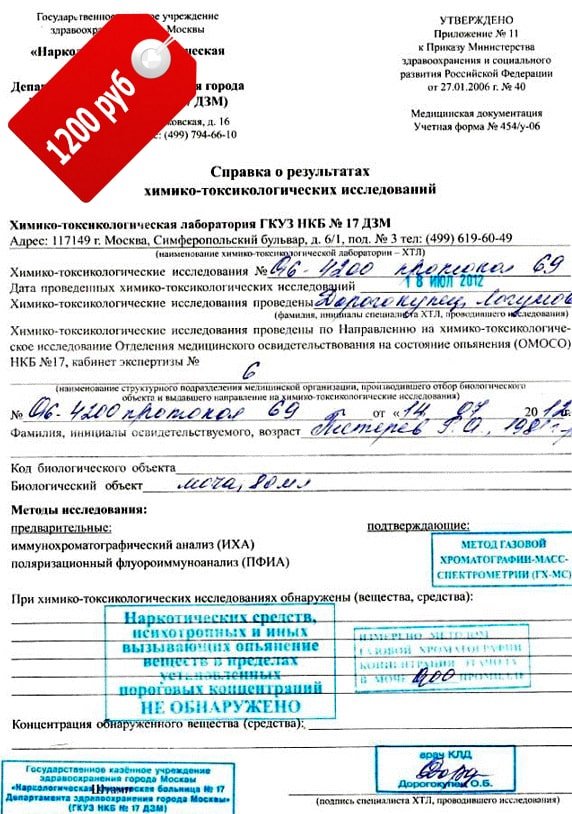 Государственное казённое учреждение
здравоохранения города Москвы
«Нарко ческая
Департамен ия города
17 ДЗМ)
ковская, д. 16
с: (499) 794-66-10
1200 руб
УТВЕРЖДЕНО
Приложение № 11
к Приказу Министерства
здравоохранения и социального
развития Российской Федерации
от 27.01.2006 г. № 40
Медицинская документация
Учетная форма № 454/у-06
Справка о результатах
химико-токсикологических исследований
Химико-токсикологическая лаборатория ГКУЗ НКБ № 17 ДЗМ
Адрес: 117149 г. Москва, Симферопольский бульвар, д. 6/1, пол. № 3 тел: (499) 619-60-49
(наименование химико-токсикологической лаборатории – ХТЛ)
Химико-токсикологические исследования № 96-4200 протокол 69
Дата проведенных химико-токсикологических исследований 18 ИЮЛ 2012
Химико-токсикологические исследования проведены Дорогокупец,
(фамилия, инициалы специалиста ХТЛ, проводившего исследования)
Химико-токсикологические исследования проведены по Направлению на химико-токсикологиче-
ское исследование Отделения медицинского освидетельствования на состояние опьянения (ОМОСО)
НКБ №17, кабинет экспертизы № 6
(наименование структурного подразделения медицинской организации, производившего отбор биологического
объекта и выдавшего направление на химико-токсикологические исследования)
№ 96-4200 протокол 69 от «14» 07 2012г.
Фамилия, инициалы освидетельствуемого, возраст Г.О., 1981 г.р
Код биологического объекта
Биологический объект моча, 80 мл
Методы исследования:
предварительные: подтверждающие:
иммунохроматографический анализ (ИХА)
поляризационный флуороиммуноанализ (ПФИА)
МЕТОД ГАЗОВОЙ
ХРОМАТОГРАФИИ-МАСС-
СПЕКТРОМЕТРИИ (ГХ-МС)
При химико-токсикологических исследованиях обнаружены (вещества, средства):
Наркотических средств,
психотропных и иных
вызывающих опьянение
веществ в пределах
установленных
пороговых концентраций
НЕ ОБНАРУЖЕНО
ИЗМЕРЕНО МЕТОДОМ
ГАЗОВОЙ ХРОМАТОГРАФИИ
КОНЦЕНТРАЦИИ ЭТАНОЛА
В МОЧЕ 0,00 ПРОМИЛЛЕ
Концентрация обнаруженного вещества (средства):
Государственное казённое учреждение
здравоохранения города Москвы
«Наркологическая клиническая больница № 17
Департамента здравоохранения города Москвы»
(ГКУЗ НКБ № 17 ДЗМ)
Штамп
врач КЛД
Дорогокупец О.Б.
(подпись специалиста ХТЛ, проводившего исследования)